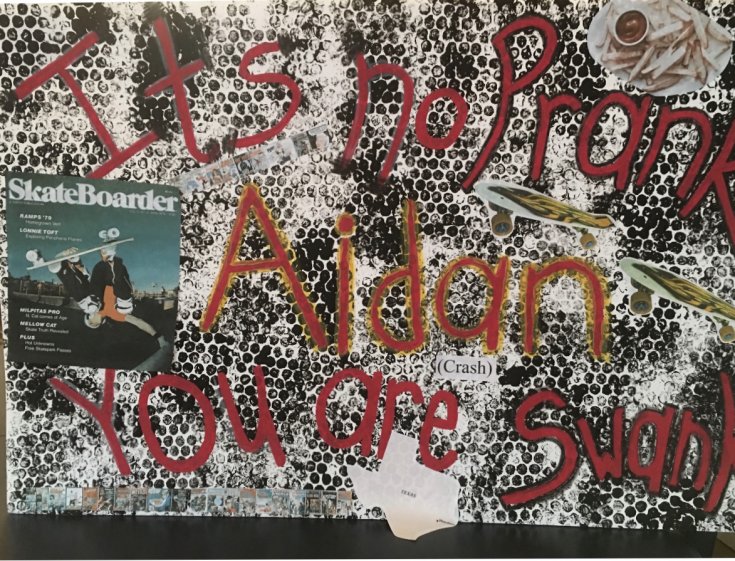 Its no Prank
SkateBoarder
RAMPS '79
Homegrown Vert
LONNIE TOFT
Exploring Peripheral Planes
MILPITAS PRO
N. Cal comes of Age
MELLOW CAT
Skate Truth Revealed
PLUS
Hot Unknowns
Free Skatepark Passes
Aidan
(Crash)
You are Swank
TEXAS